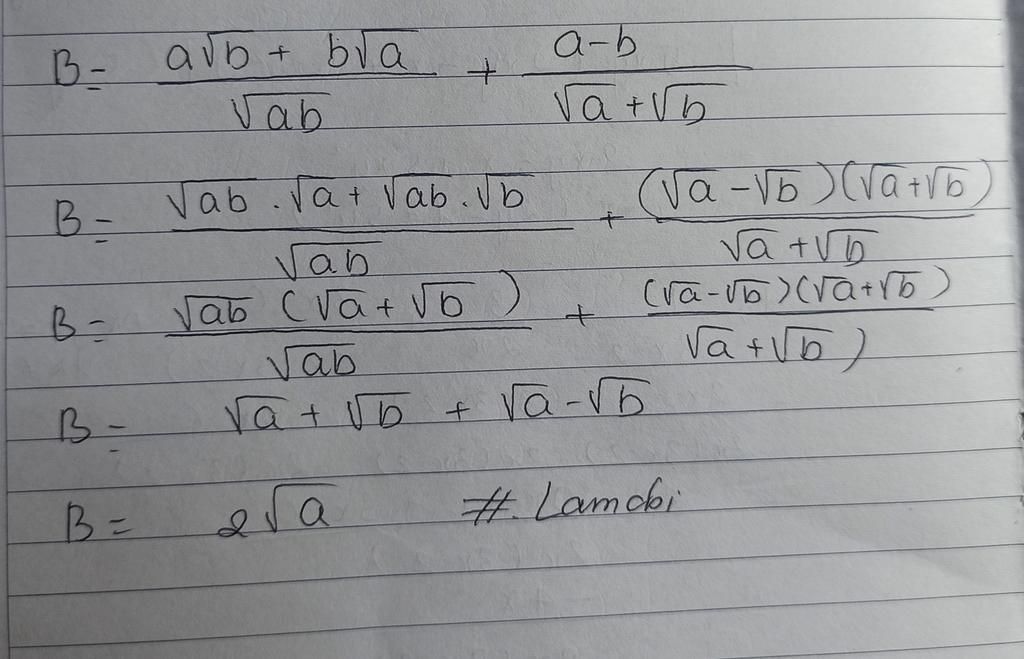 B = (a√b + b√a)/√ab + (a-b)/(√a+√b)
B = (√ab . √a + √ab . √b)/√ab + (√a -√b)(√a+√b)/(√a +√b)
B = √ab (√a + √b)/√ab + (√a-√b)(√a+√b)/√a +√b)
B = √a + √b + √a-√b
B = 2√a #.